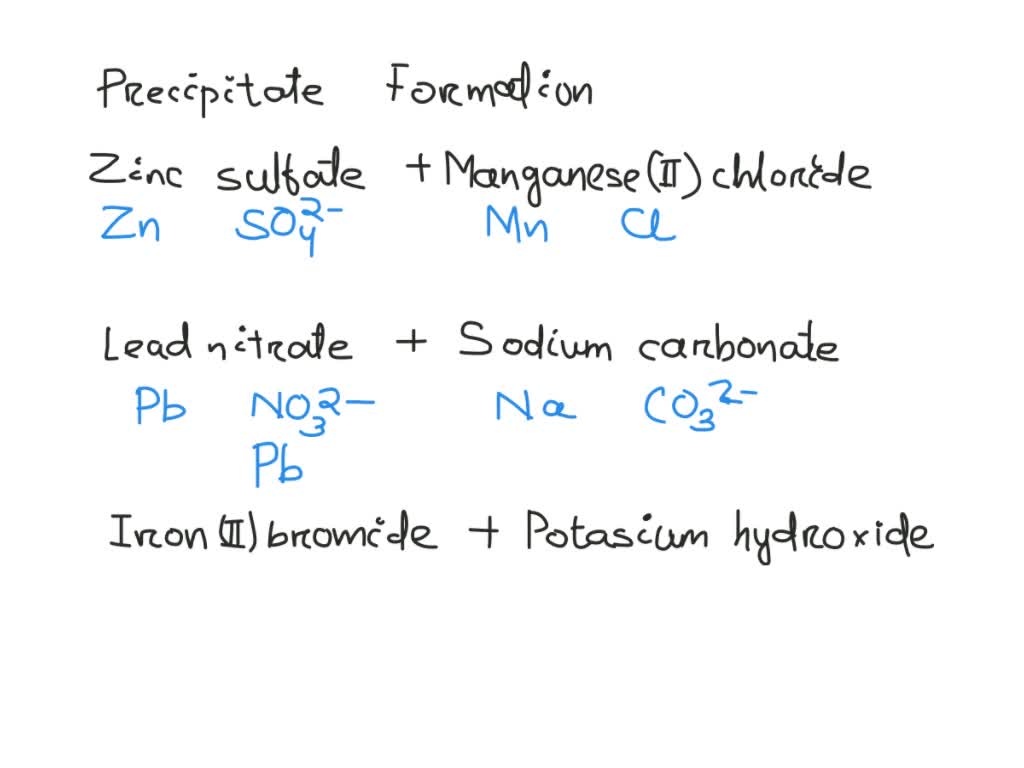 Precipitate Formation
Zinc sulfate + Manganese(II) chloride
Zn SO₄²⁻ Mn Cl
Lead nitrate + Sodium carbonate
Pb NO₃²⁻ Na CO₃²⁻
Pb
Iron(II) bromide + Potasium hydroxide